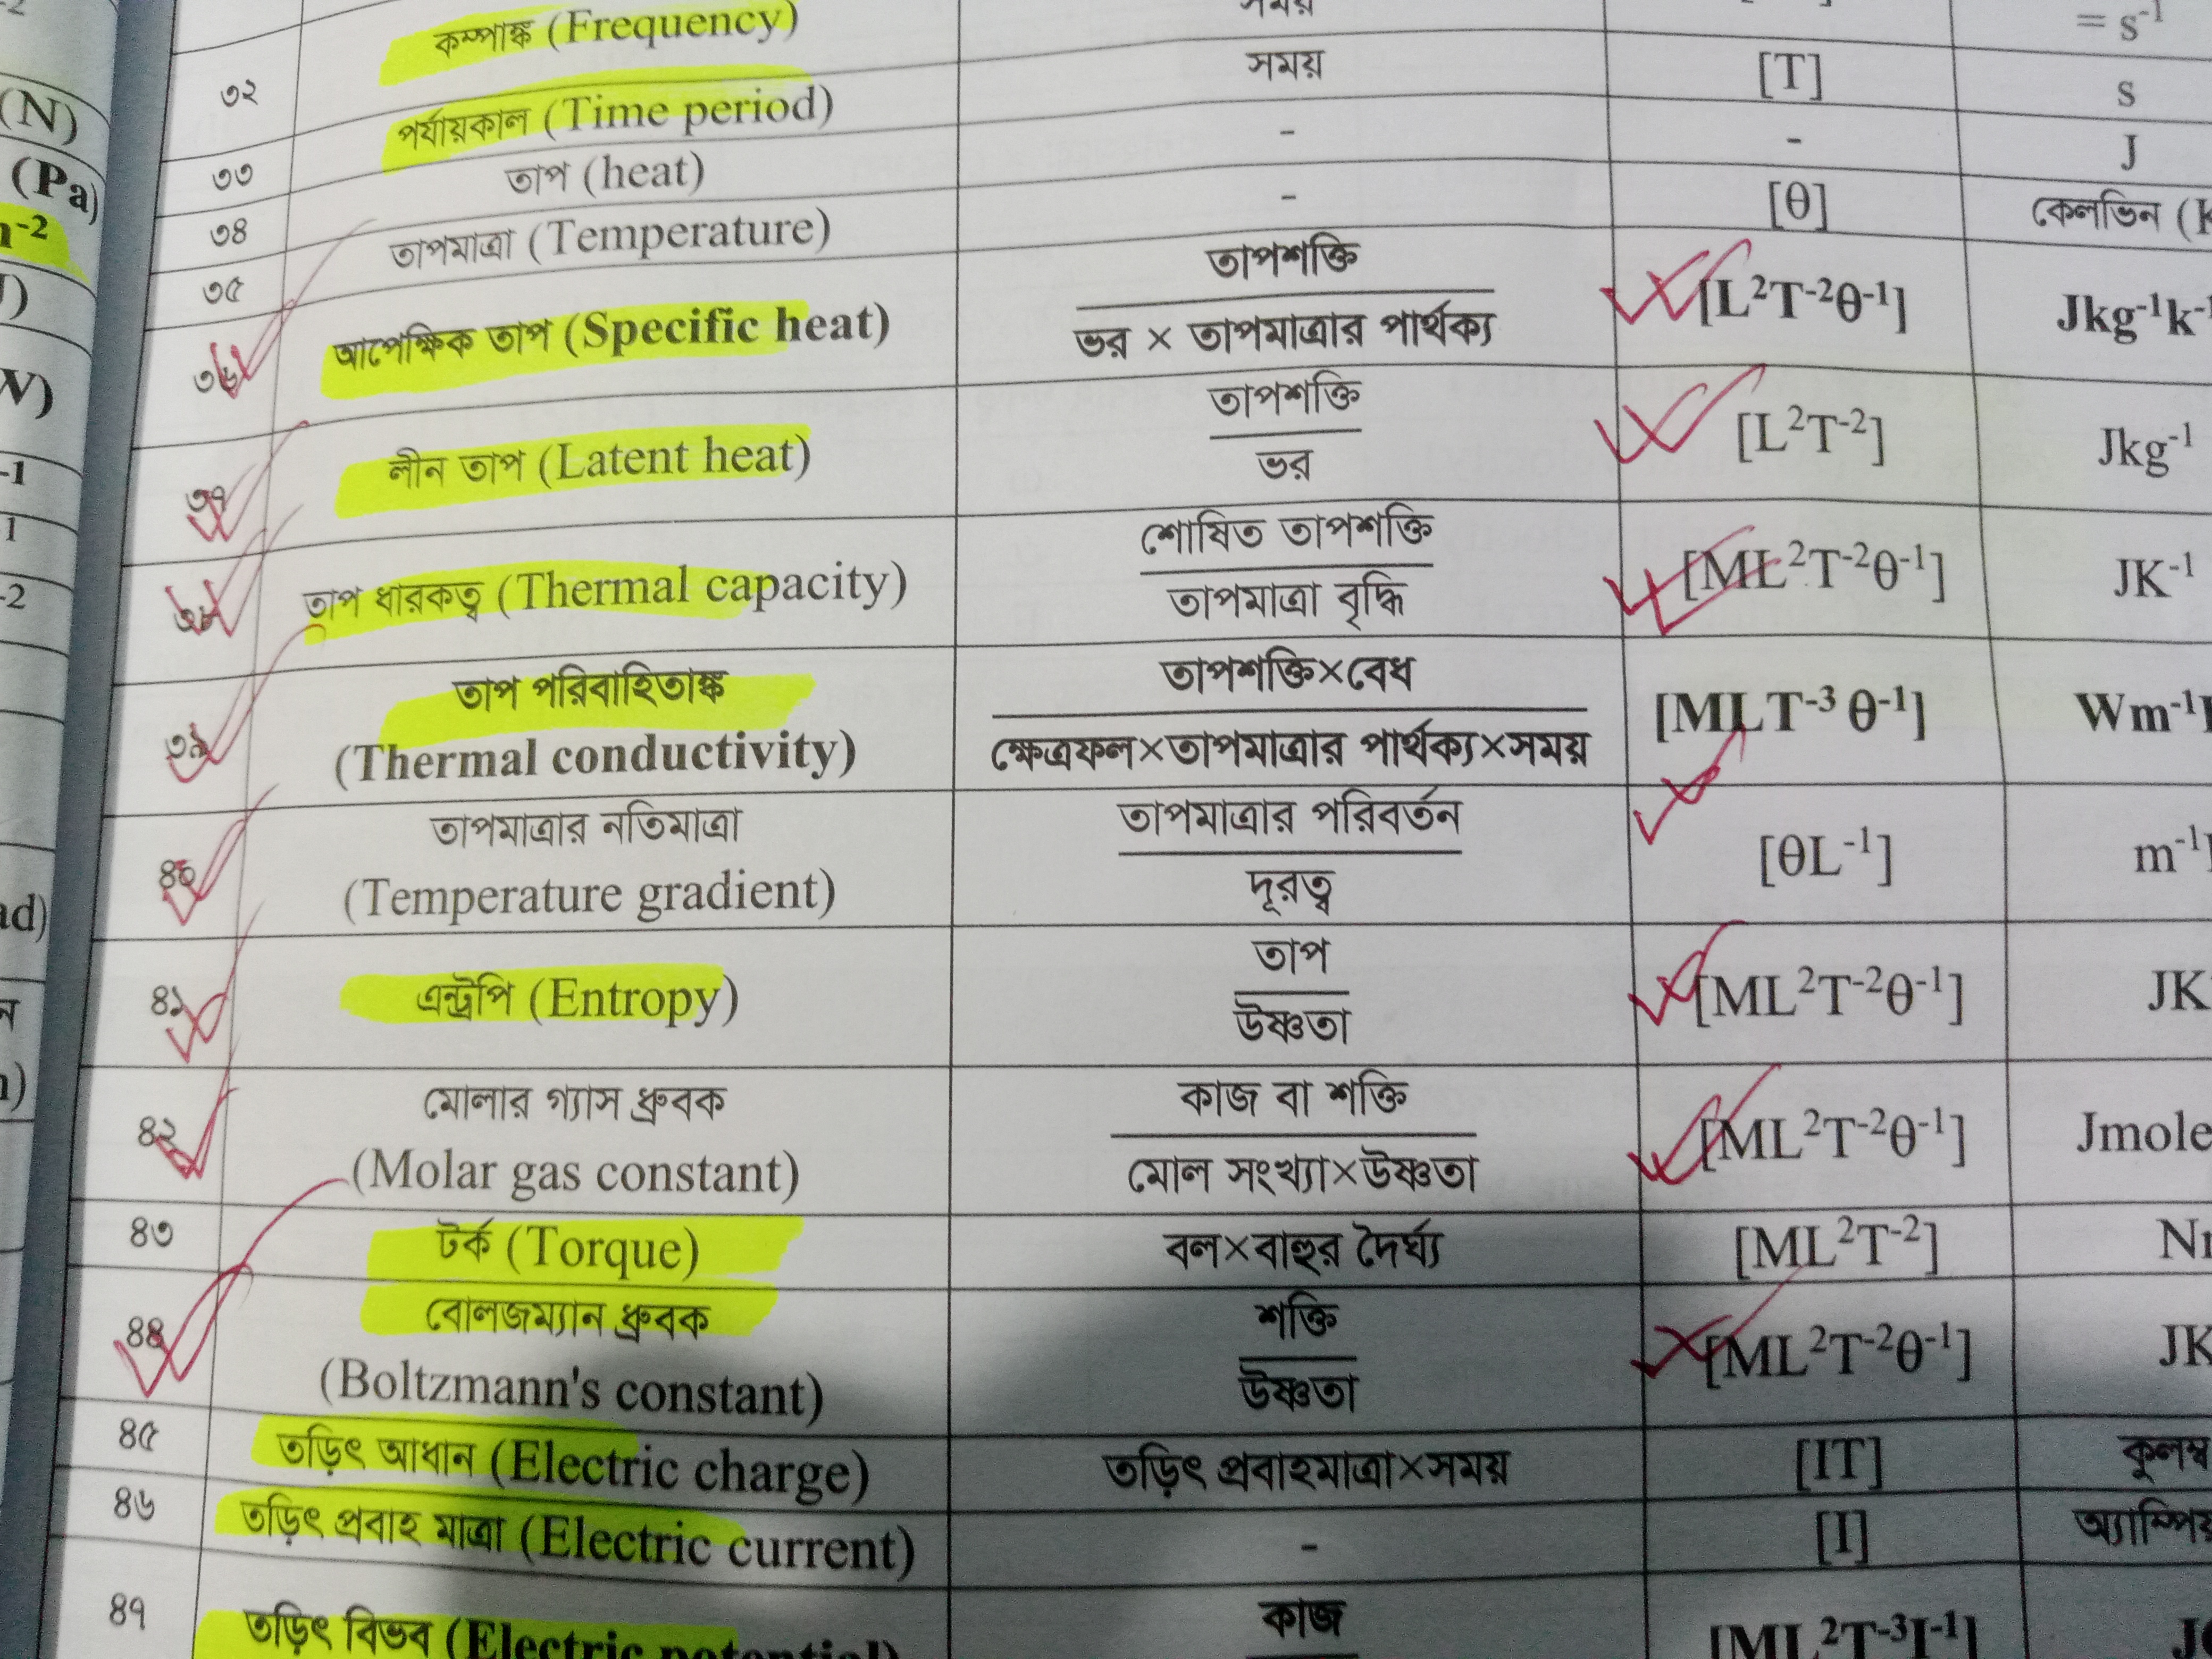 কম্পাঙ্ক (Frequency) = s⁻¹
৩২ পর্যায়কাল (Time period) সময় [T] s
৩৩ তাপ (heat) - - J
৩৪ তাপমাত্রা (Temperature) - [θ] কেলভিন
৩৫
৩৬ আপেক্ষিক তাপ (Specific heat) তাপশক্তি / ভর × তাপমাত্রার পার্থক্য [L²T⁻²θ⁻¹] Jkg⁻¹k⁻
৩৭ লীন তাপ (Latent heat) তাপশক্তি / ভর [L²T⁻²] Jkg⁻¹
৩৮ তাপ ধারকত্ব (Thermal capacity) শোষিত তাপশক্তি / তাপমাত্রা বৃদ্ধি [ML²T⁻²θ⁻¹] JK⁻¹
৩৯ তাপ পরিবাহিতাঙ্ক
(Thermal conductivity) তাপশক্তি×বেধ / ক্ষেত্রফল×তাপমাত্রার পার্থক্য×সময় [MLT⁻³ θ⁻¹] Wm⁻¹
৪০ তাপমাত্রার নতিমাত্রা
(Temperature gradient) তাপমাত্রার পরিবর্তন / দূরত্ব [θL⁻¹] m⁻¹
৪১ এন্ট্রপি (Entropy) তাপ / উষ্ণতা [ML²T⁻²θ⁻¹] JK
৪২ মোলার গ্যাস ধ্রুবক
(Molar gas constant) কাজ বা শক্তি / মোল সংখ্যা×উষ্ণতা [ML²T⁻²θ⁻¹] Jmole
৪৩ টর্ক (Torque) বল×বাহুর দৈর্ঘ্য [ML²T⁻²]
৪৪ বোলজম্যান ধ্রুবক
(Boltzmann's constant) শক্তি / উষ্ণতা [ML²T⁻²θ⁻¹] JK
৪৫ তড়িৎ আধান (Electric charge) তড়িৎ প্রবাহমাত্রা×সময় [IT] কুলম্ব
৪৬ তড়িৎ প্রবাহ মাত্রা (Electric current) - [I]
৪৭ তড়িৎ বিভব (Electric potential) কাজ [ML²T⁻³I⁻¹]
(N)
(Pa)